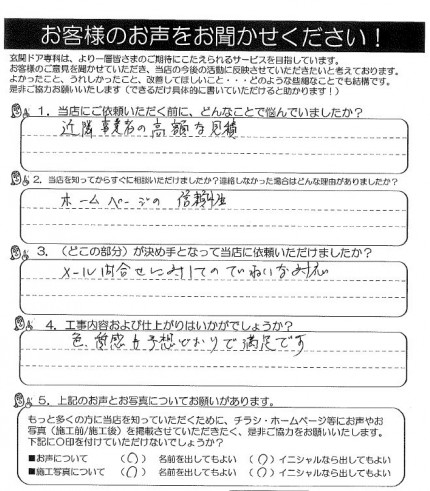 お客様のお声をお聞かせください！
玄関ドア専科は、より一層皆さまのご期待にこたえられるサービスを目指しています。
お客様のご意見を聞かせていただき、当店の今後の活動に反映させていただきたいと考えております。
よかったこと、うれしかったこと、改善してほしいこと・・・どのような些細なことでも結構です。
是非ご協力お願いいたします（できるだけ具体的に書いていただけると助かります！）
1．当店にご依頼いただく前に、どんなことで悩んでいましたか？
近隣事業者の高額な見積
2．当店を知ってからすぐに相談いただけましたか？連絡しなかった場合はどんな理由がありましたか？
ホームページの信頼性
3．（どこの部分）が決め手となって当店に依頼いただけましたか？
メール問合せに対してのていねいな対応
4．工事内容および仕上がりはいかがでしょうか？
色、質感も予想どおりで満足です
5．上記のお声とお写真についてお願いがあります。
もっと多くの方に当店を知っていただくために、チラシ・ホームページ等にお声やお
写真（施工前/施工後）を掲載させていただきたく、是非ご協力をお願いいたします。
下記に〇印を付けていただけないでしょうか？
■お声について （〇） 名前を出してもよい （〇）イニシャルなら出してもよい
■施工写真について （〇） 名前を出してもよい （〇）イニシャルなら出してもよい